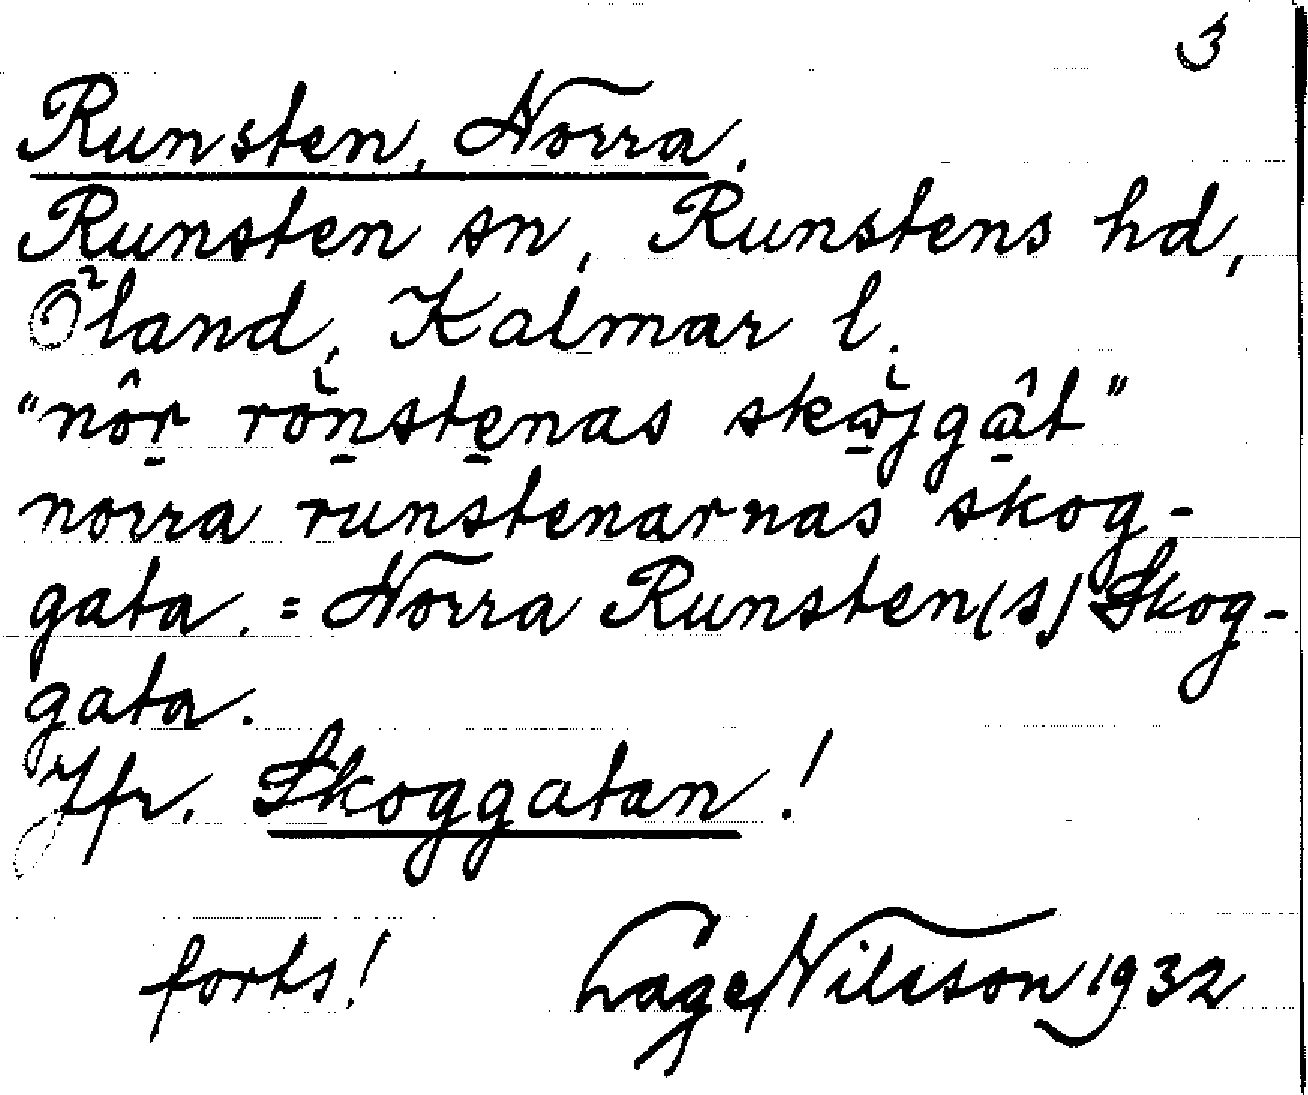 3
Runsten, Norra.
Runsten sn, Runstens hd,
Öland, Kalmar l.
"nôr rònstenas skòjgât"
norra runstenarnas skog-
gata. = Norra Runsten(s) Skog-
gata.
Jfr. Skoggatan!
forts! Lage Nilsson 1932